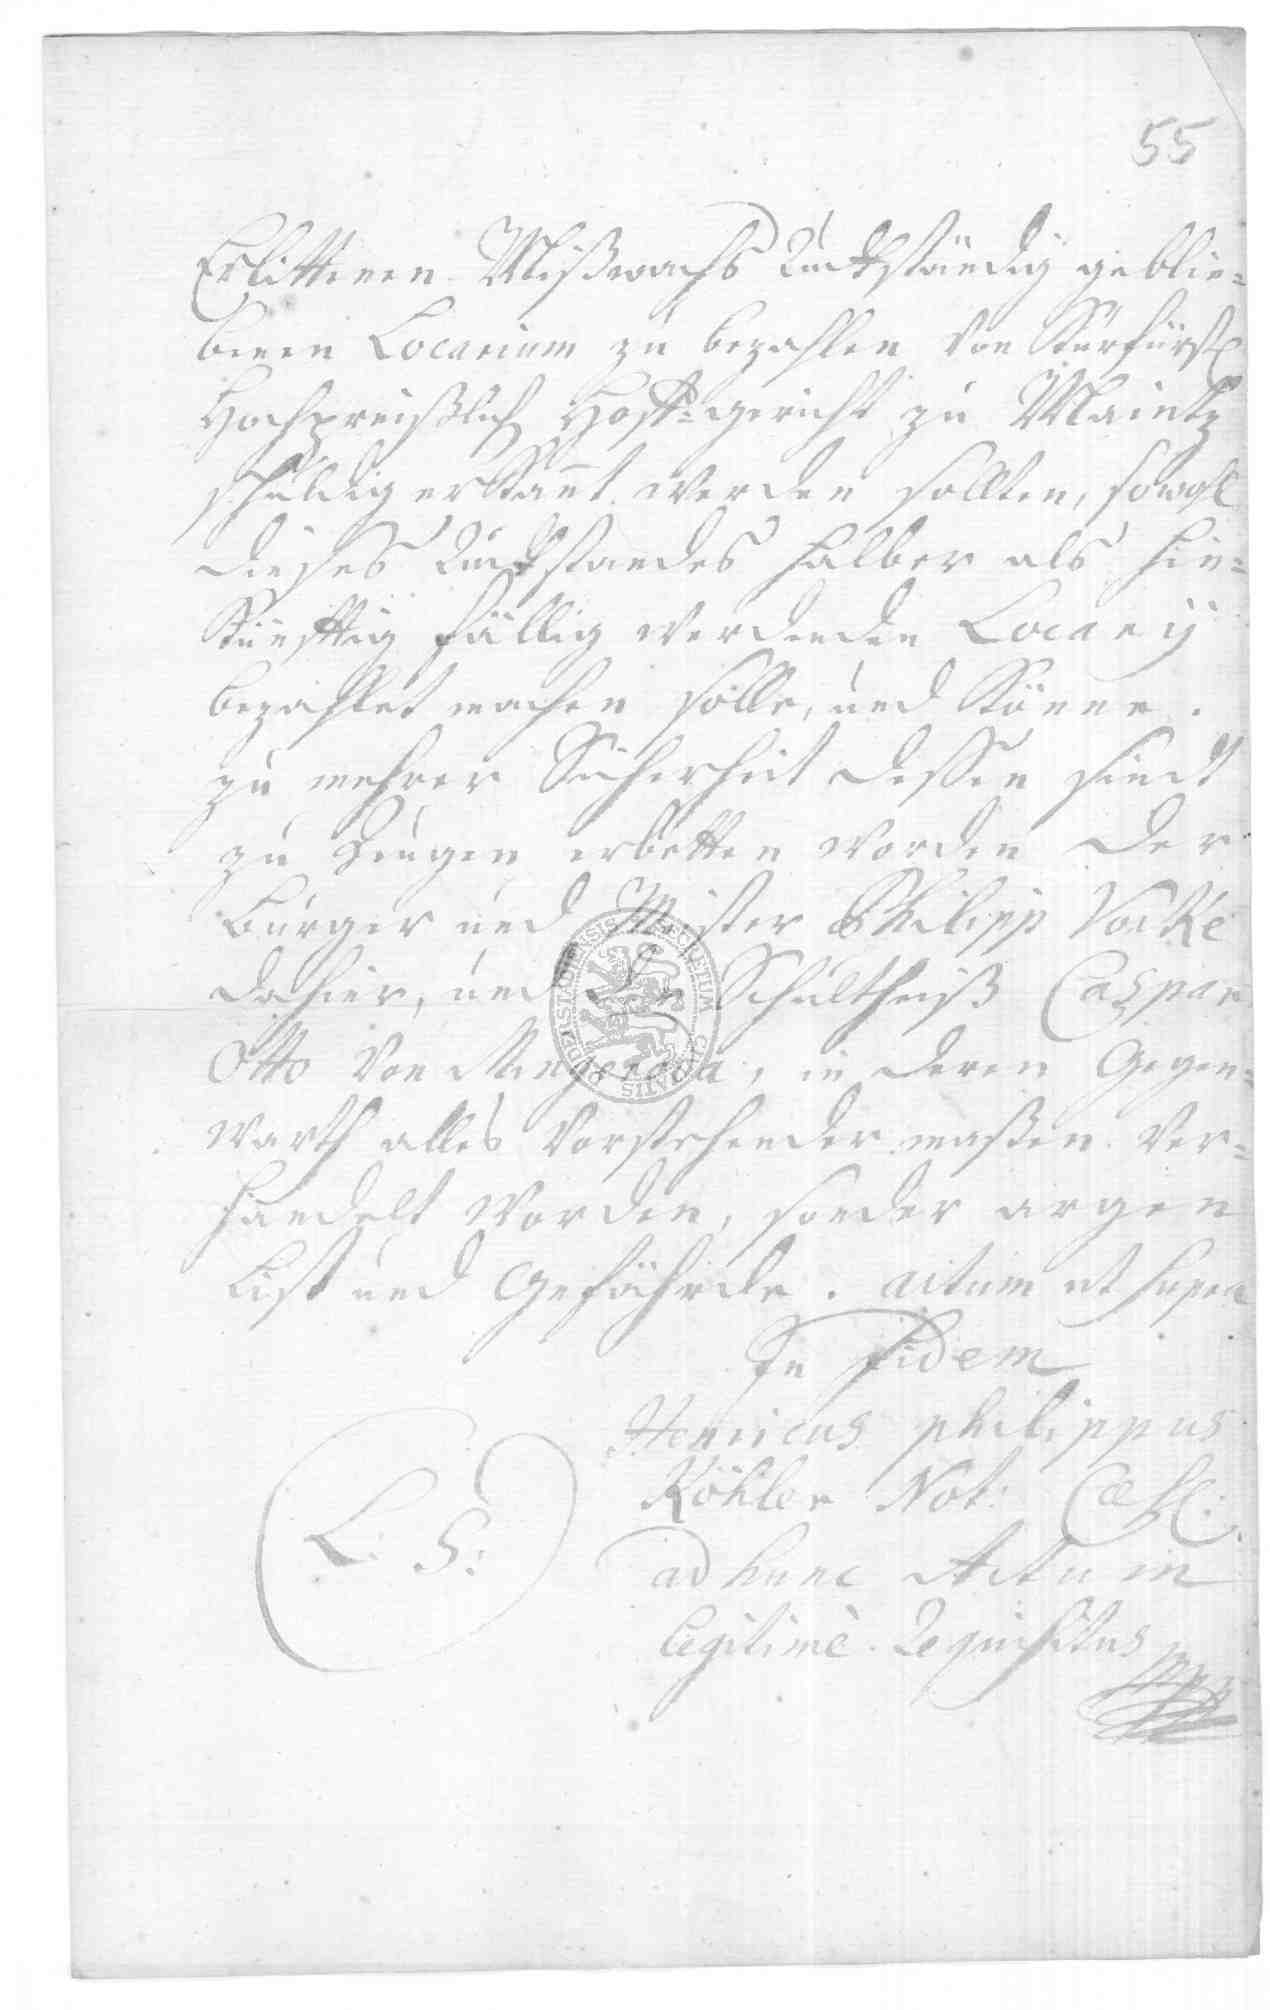 55
Erlittenen Mißwachs Ruckständig geblie=
benen Locarium zu bezahlen Von Kurfürstl
Hochpreißlich Hoff=gericht zu Maintz
schuldig erkant werden sollten, sowohl
dieses Ruckstandes halber als hin=
künfftig fällig werdenden Locarij
bezahlet machen solle, und könne.
zu mehrer Sicherheit dessen sindt
zu Zeugen erbetten worden der
Bürger und Meister Philipp Vocke
dahier, und der Schultheiß Caspar
Otto Von Mingeroda, in deren Gegen=
warth alles Vorstehender maßen Ver=
handelt worden, sonder argen
List und Gefährde. actum ut supra
In Fidem
Henricus philippus
Köhler Not: Cæs:
ad hunc Actum
legitimè Requisitus
L. S:
SECRETUM CIVITATIS